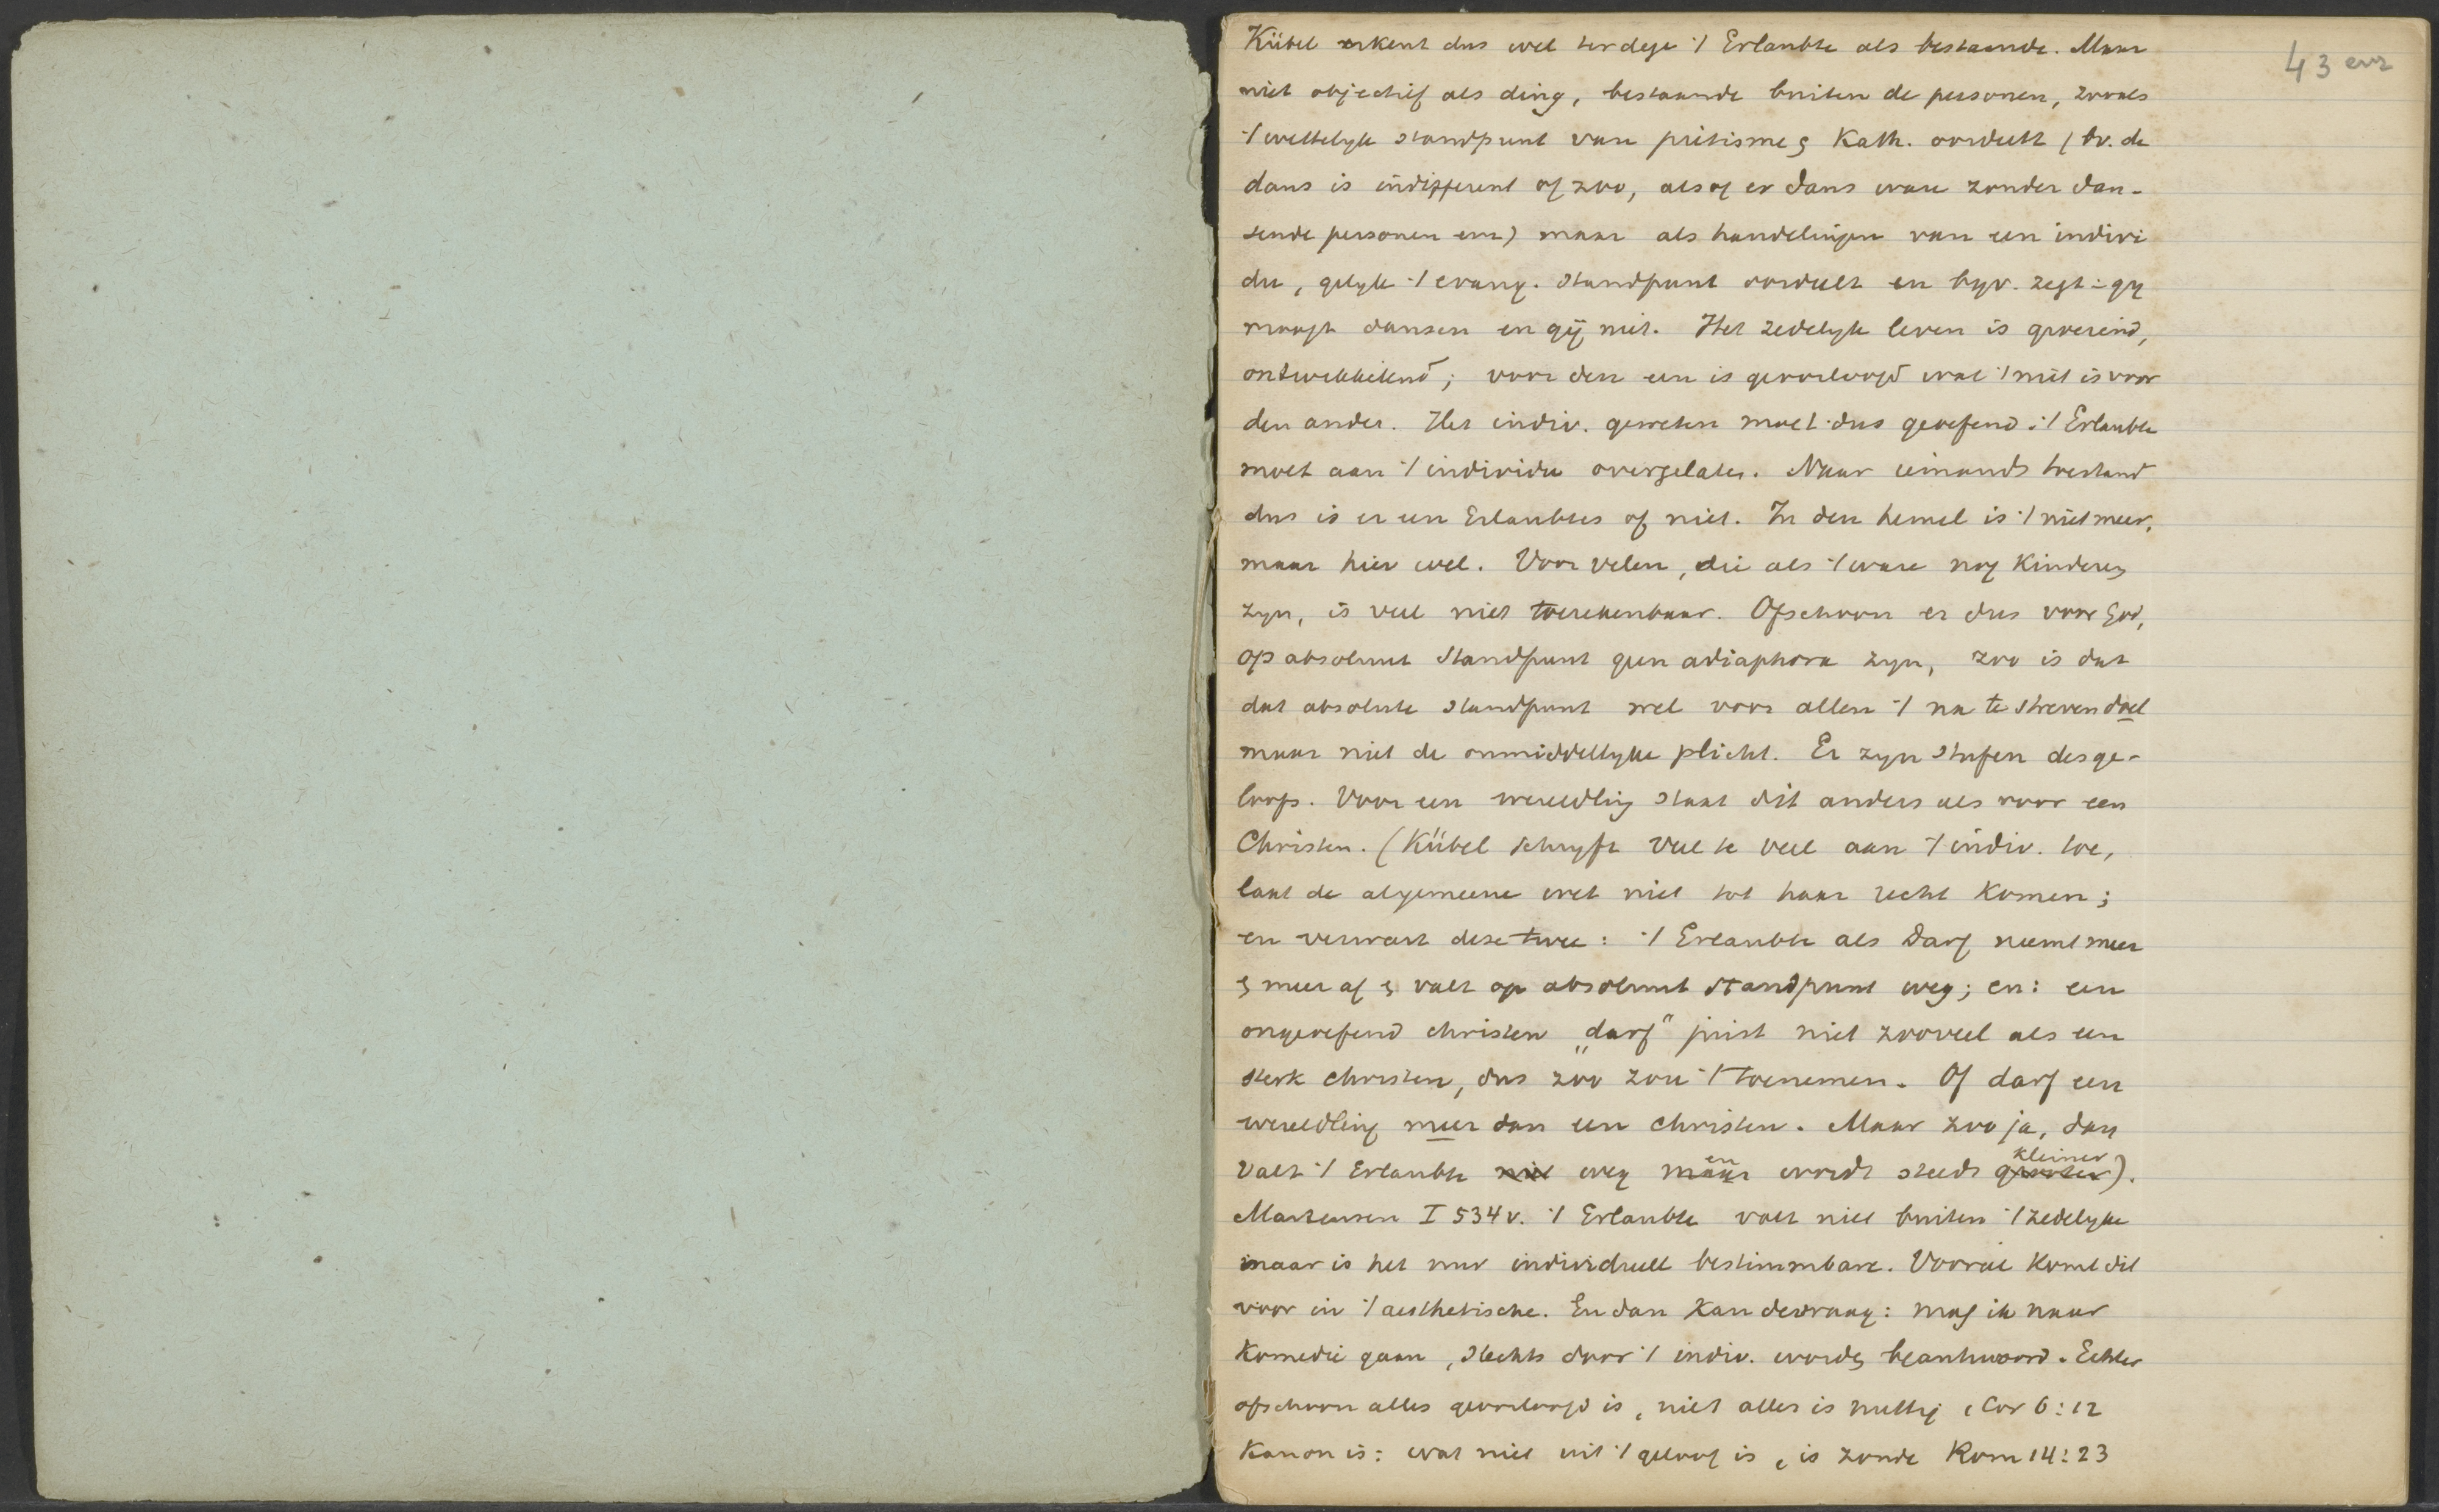 43 env
Kübel erkent dus wel terdege 't Erlaubte als bestaande. Maar
niet objectief als ding, bestaande buiten de personen, zooals
't wettelyk standpunt van piëtisme & Kath. oordeelt (bv. de
dans is indifferent of zoo, alsof er dans ware zonder dan-
sende personen enz) maar als handelingen van een indivi
du, gelyk 't evang. standpunt oordeelt en byv. zegt: gy
moogt dansen en gij niet. Het zedelyk leven is groeiend,
ontwikkelend; voor den een is geoorloofd wat 't niet is voor
den ander. Het indiv. geweten moet dus geoefend: 't Erlaubte
moet aan 't individu overgelaten. Naar iemands toestand
dus is er een Erlaubtes of niet. In den hemel is 't niet meer,
maar hier wel. Voor velen, die als 't ware nog Kinderen
zyn, is veel niet toerekenbaar. Ofschoon er dus voor God,
op absoluut standpunt geen adiaphora zyn, zoo is dat
dat absolute standpunt wel voor allen 't na te streven doel
maar niet de onmiddellyke plicht. Er zyn stufen des ge-
loofs. Voor een wereldling staat dit anders als voor een
Christen. (Kübel schryft veel te veel aan 't indiv. toe,
laat de algemeene wet niet tot haar recht Komen;
en verwart deze twee: 't Erlaubte als Darf neemt meer
& meer af & valt op absoluut standpunt weg; en: een
ongeoefend christen „darf" juist niet zooveel als een
sterk christen, dus zoo zou 't toenemen. Of darf een
wereldling meer dan een christen. Maar zoo ja, dan
en kleiner
valt 't Erlaubte niet weg maar wordt steeds grooter).
Martensen I 534v. 't Erlaubte valt niet buiten 't zedelyke
maar is het nur individuell bestimmbare. Vooral Komt dit
voor in 't aesthetische. En dan Kan de vraag: mag ik naar
Komedie gaan, slechts door 't indiv. worden beantwoord. Echter
ofschoon alles geoorloofd is, niet alles is nuttig 1 Cor 6:12
Kanon is: wat niet uit 't geloof is, is zonde Rom 14:23